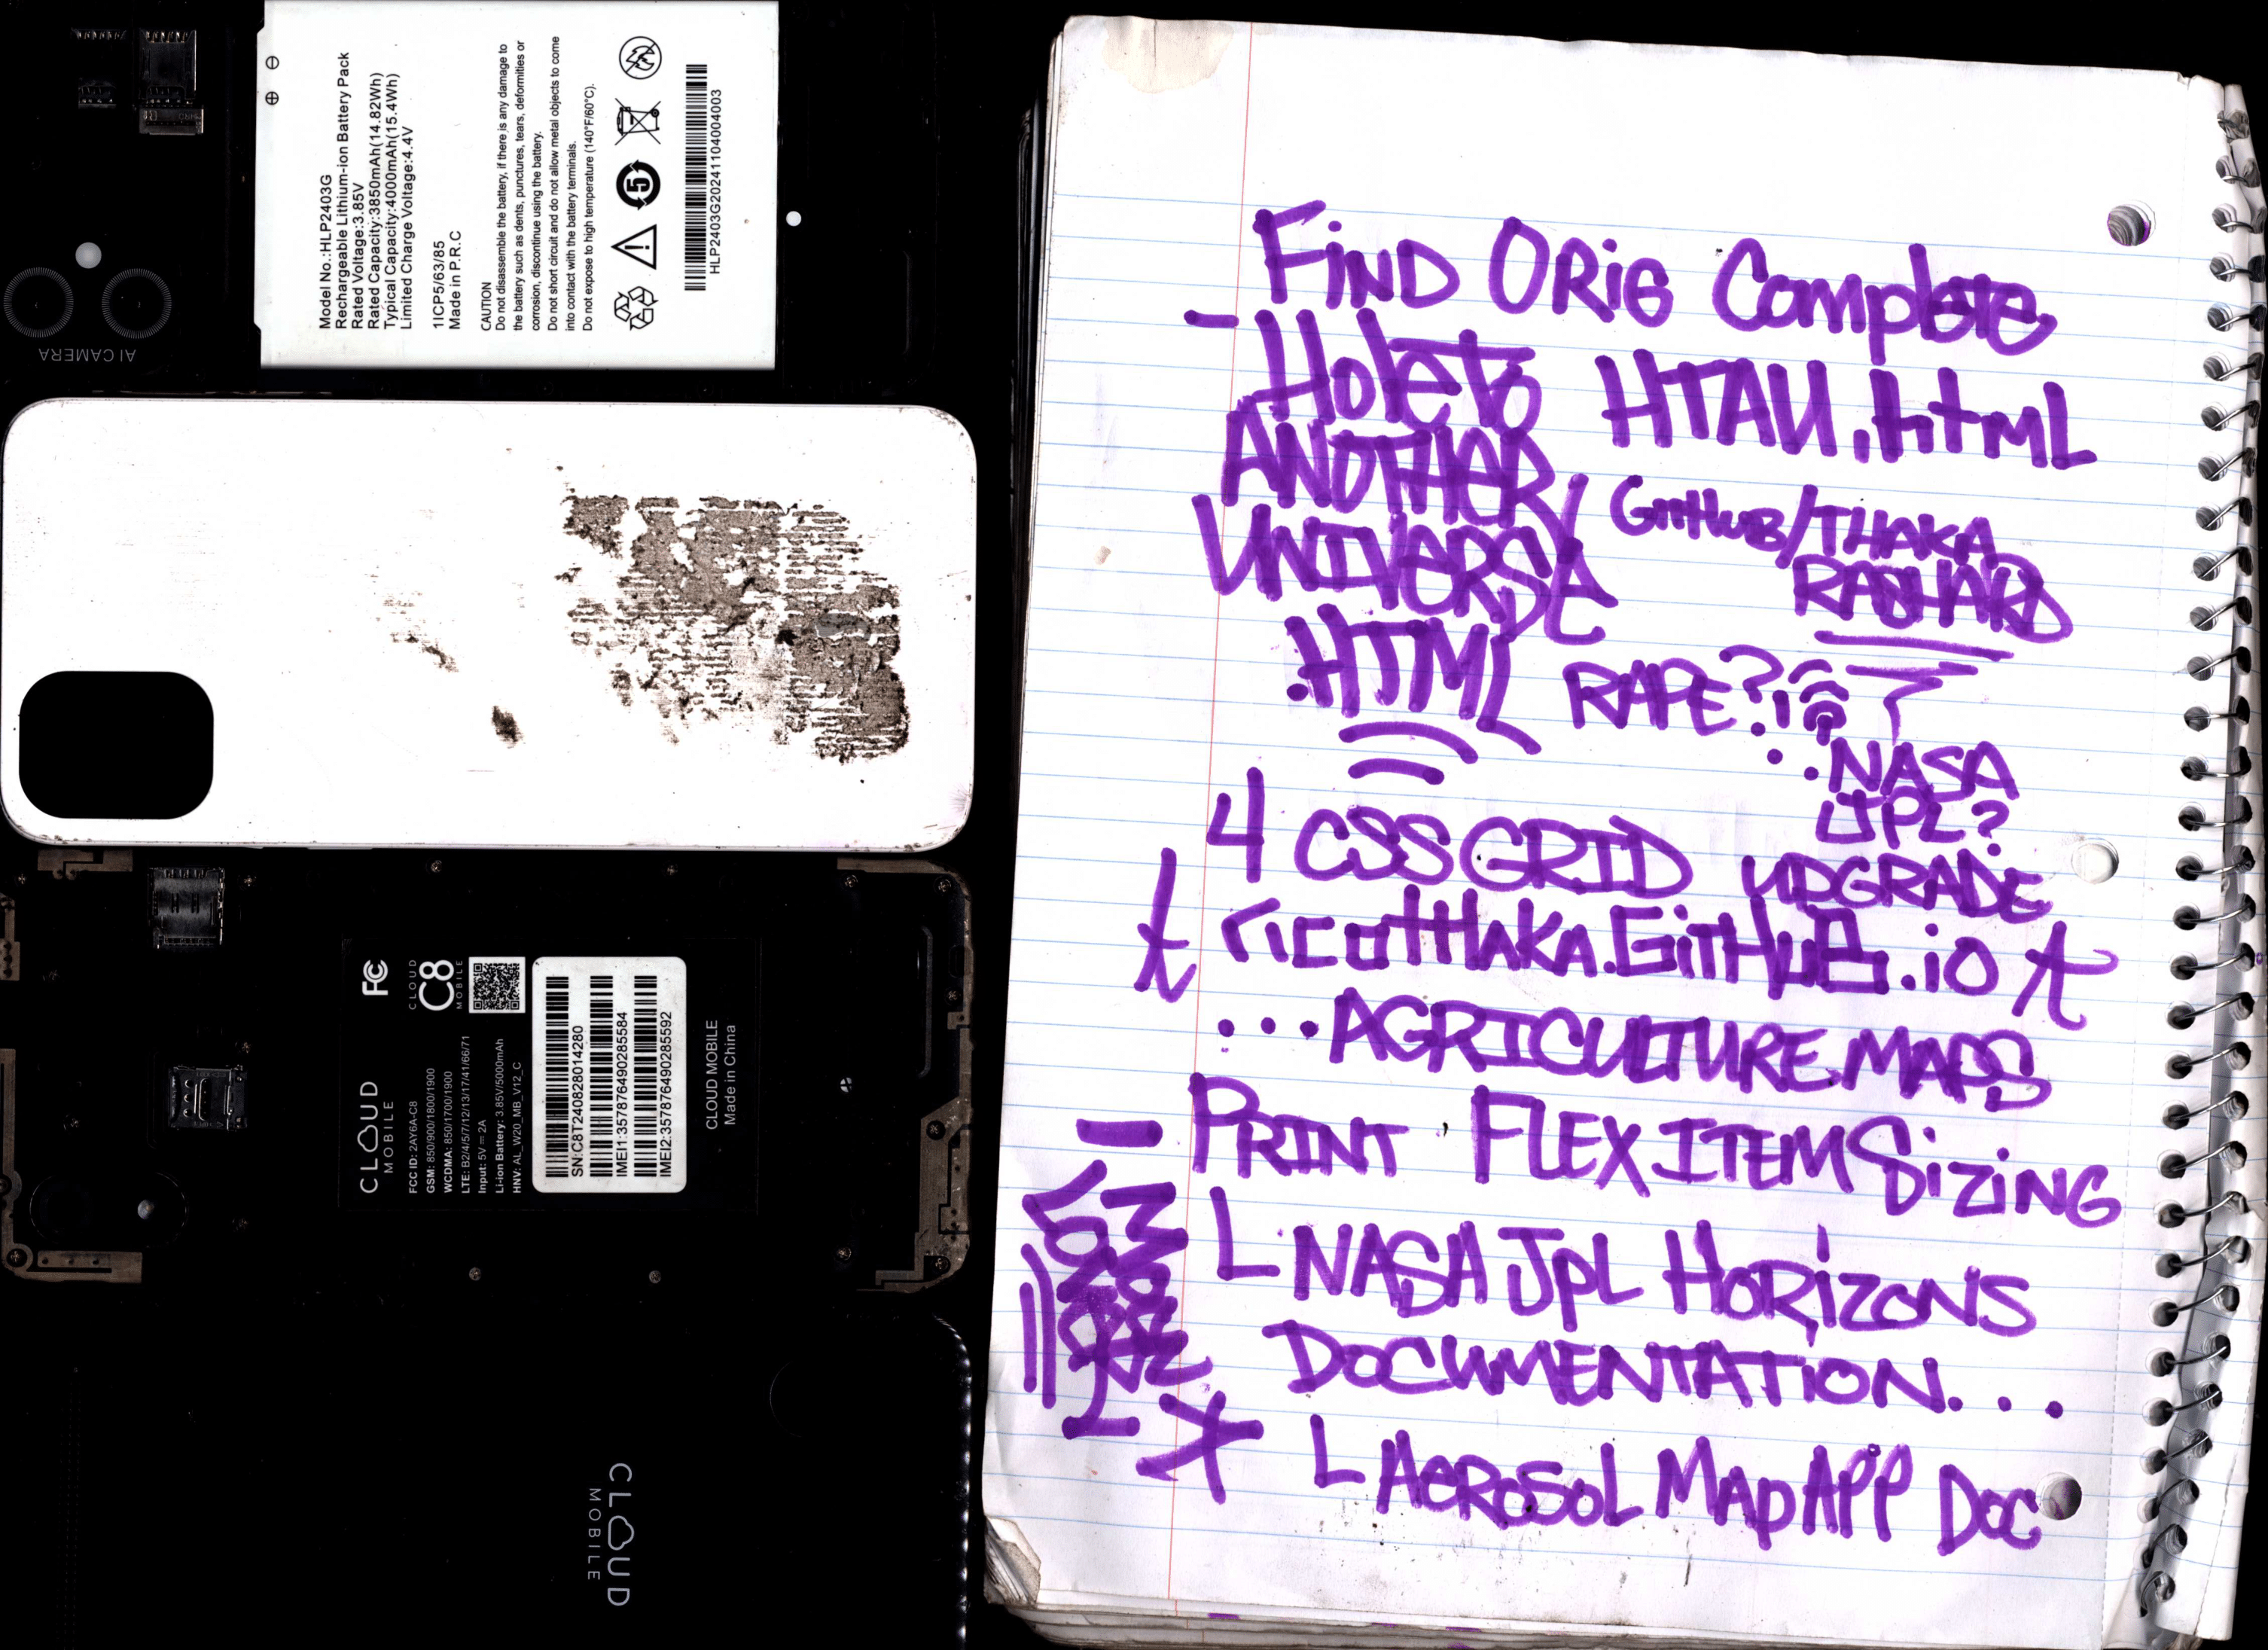 Model No.:HLP2403G
Rechargeable Lithium-ion Battery Pack
Rated Voltage:3.85V
Rated Capacity:3850mAh(14.82Wh)
Typical Capacity:4000mAh(15.4Wh)
Limited Charge Voltage:4.4V
1ICP5/63/85
Made in P.R.C
CAUTION
Do not disassemble the battery, if there is any damage to
the battery such as dents, punctures, tears, deformities or
corrosion, discontinue using the battery.
Do not short circuit and do not allow metal objects to come
into contact with the battery terminals.
Do not expose to high temperature (140°F/60°C).
5
HLP2403G20241104004003
AI CAMERA
CLOUD
MOBILE
FCC ID: 2AY6A-C8
GSM: 850/900/1800/1900
WCDMA: 850/1700/1900
LTE: B2/4/5/7/12/13/17/41/66/71
Input: 5V⎓2A
Li-ion Battery: 3.85V/5000mAh
HNV: AL_W20_MB_V12_C
FC
CLOUD
C8
MOBILE
SN:C8T240828014280
IMEI1:357876490285584
IMEI2:357876490285592
CLOUD MOBILE
Made in China
CLOUD
MOBILE
FIND ORIG Complete
- Hole to HTAU.html
ANOTHER
UNIVERSE
.HTML
GitHub/THAKA
RASHARD
RAPE?!
NASA
JPL?
4 CSS GRID UPGRADE
ricottHAKA.GitHub.io
...AGRICULTURE MAPS
- PRINT FLEX ITEM SiZiNG
L NASA JPL HORiZONS
DOCUMENTATION...
L AeROSOL MAP APP DOC